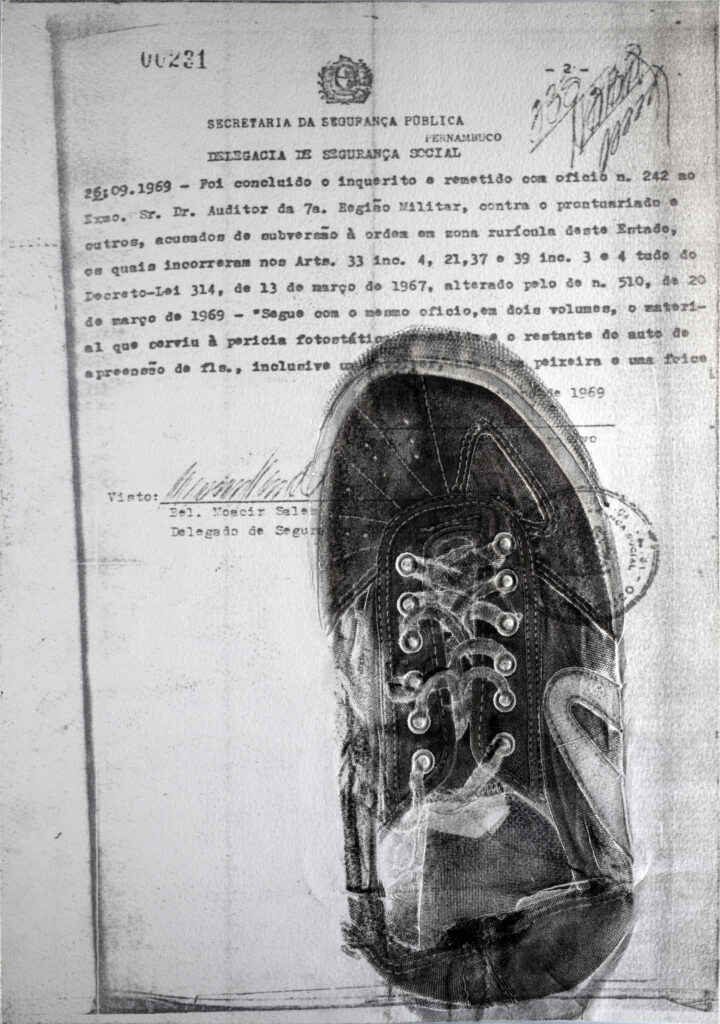 00231
- 2 -
SECRETARIA DA SEGURANÇA PÚBLICA
PERNAMBUCO
DELEGACIA DE SEGURANÇA SOCIAL
26:09.1969 - Foi concluido o inquerito e remetido com oficio n. 242 ao
Exmo. Sr. Dr. Auditor da 7a. Região Militar, contra o prontuariado e
outros, acusados de subversão à ordem em zona rurícula deste Estado,
os quais incorreram nos Arts. 33 inc. 4, 21,37 e 39 inc. 3 e 4 tudo do
Decreto-Lei 314, de 13 de março de 1967, alterado pelo de n. 510, de 20
de março de 1969 - "Segue com o mesmo oficio,em dois volumes, o materi-
al que serviu à pericia fotostátic e o restante do auto de
apreensão de fls., inclusive um peixeira e uma foice
de 1969
vo
Visto:
Bel. Moacir Sales
Delegado de Segur